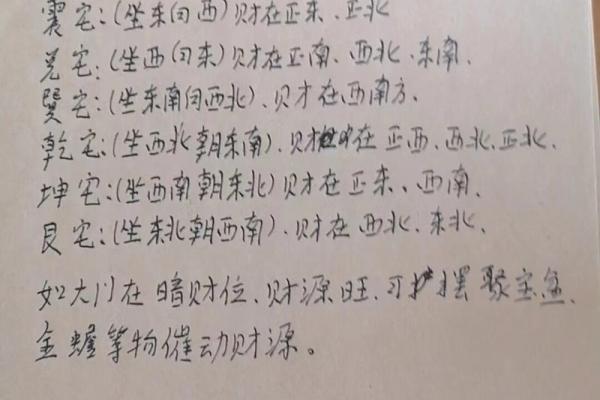 震宅:(坐东向西)财在正东、正北
兑宅:(坐西向东)财在正南、西北、东南、
巽宅:(坐东南向西北)、财在西南方、
乾宅:(坐西北朝东南)、财在正西、西北、正北、
坤宅:(坐西南朝东北)财在正东、西南、
艮宅:(坐东北朝西南)、财在西北、东北、
如大门在暗财位、财源旺、可摆聚宝盆、
金蟾等物催动财源。